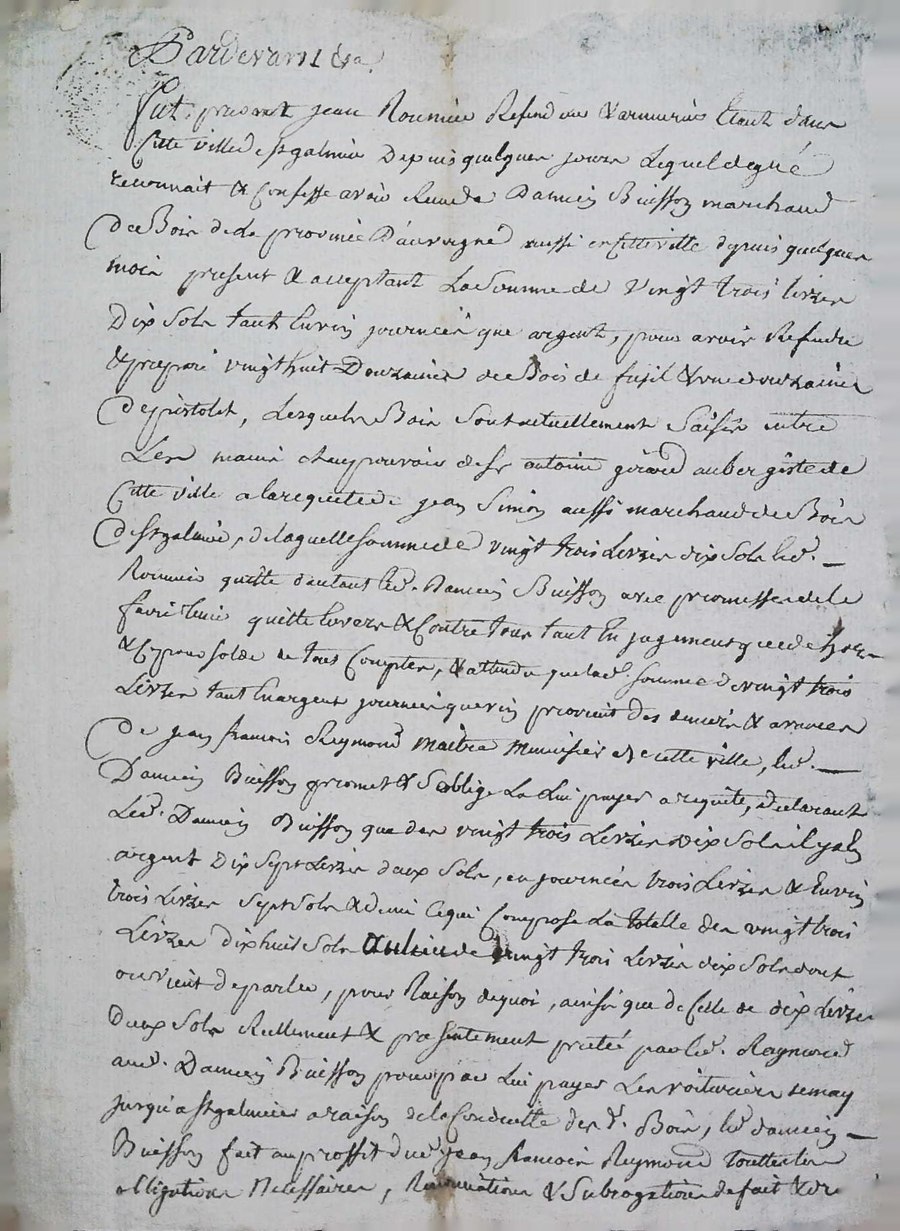 Pardevant &a
fut present jean Roumier Refendeur & armurier Etant dans
Cette ville de st galmier Depuis quelques jours Lequel de gré
reconnait & Confesse avoir Recu de Damien Buisson marchand
De Bois de la province Dauvergne aussi en Cette ville depuis quelques
mois present & acceptant La Somme de vingt trois livres
Dix Sols tant En vin journées que argent, pour avoir Refendu
& preparé vingt huit Douzaines de Bois de fusil & une douzaine
de pistolet, Lesquels Bois Sont actuellement Saisis entre
Les mains & au pouvoir de sr antoine girard aubergiste de
Cette ville a la requete de jean Simon aussi marchand de Bois
de st galmier, de laquelle Somme de vingt trois Livres dix Sols led.
Roumier quitte dautant led. Damien Buisson avec promesse de le
faire tenir quitte Envers & Contre tous tant En jugement que dehors
& Ce pour solde de tous Comptes, & attendu que lad. Somme de vingt trois
Livres tant En argent journées que vin provient des deniers & avances
De jean francois Reymond maitre menuisier de cette ville, led.
Damien Buisson promet & Soblige La Lui payer a requete, declarant
Led. Damien Buisson que des vingt trois Livres dix Sols il y a En
argent Dix Sept Livres deux Sols, en journées trois Livres & En vin
trois Livres Sept Sols & demi Ce qui Compose La totalle des vingt trois
Livres dix huit Sols Au lieu de vingt trois Livres dix Sols dont
on vient de parler, pour Raison de quoi, ainsi que de Celle de dix Livres
Deux Sols Reellement & presentement preté par led. Raymond
aud. Damien Buisson pour par Lui payer Les voituriers
jusqu'a st galmier a raison de la Conduitte des d. Bois, led damien
Buisson fait au proffit dud. jean francois Reymond touttes les
obligations Necessaires, Renonciations & Subrogations de fait & de